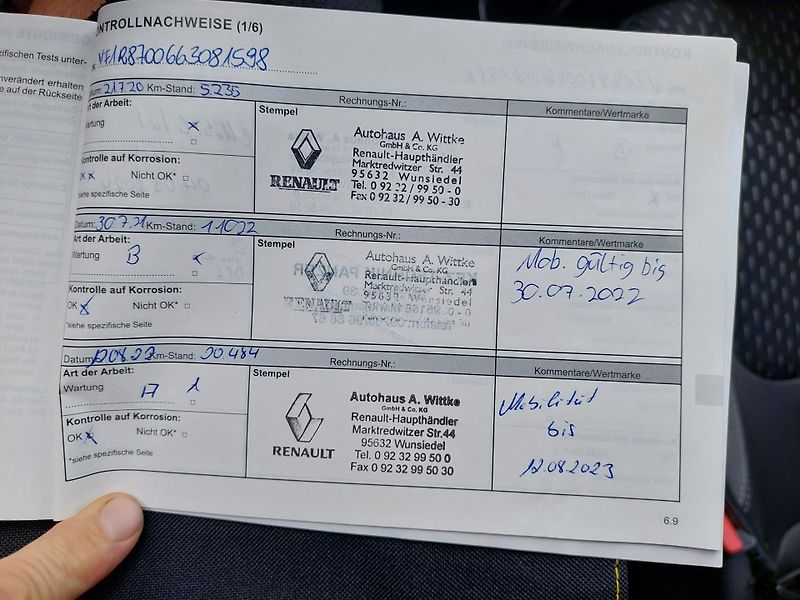 ONTROLLNACHWEISE (1/6)
zifischen Tests unter-
nverändert erhalten
e auf der Rückseite
VF1R8700663081598
Datum: 2.1.7.20 Km-Stand: 5.235
Rechnungs-Nr.:
Art der Arbeit:
Wartung x
Kontrolle auf Korrosion:
OK x Nicht OK* □
*siehe spezifische Seite
Stempel
RENAULT
Autohaus A. Wittke
GmbH & Co. KG
Renault-Haupthändler
Marktredwitzer Str. 44
95632 Wunsiedel
Tel. 0 92 32 / 99 50 - 0
Fax 0 92 32 / 99 50 - 30
Kommentare/Wertmarke
Datum: 30.7.21 Km-Stand: 11022
Rechnungs-Nr.:
Art der Arbeit:
Wartung B x
Kontrolle auf Korrosion:
OK x Nicht OK* □
*siehe spezifische Seite
Stempel
RENAULT
Autohaus A. Wittke
GmbH & Co. KG
Renault-Haupthändler
Marktredwitzer Str. 44
95632 Wunsiedel
Kommentare/Wertmarke
Mob. gültig bis
30.07.2022
Datum: 120822 Km-Stand: 20484
Rechnungs-Nr.:
Art der Arbeit:
Wartung A 1
Kontrolle auf Korrosion:
OK x Nicht OK* □
*siehe spezifische Seite
Stempel
RENAULT
Autohaus A. Wittke
GmbH & Co. KG
Renault-Haupthändler
Marktredwitzer Str.44
95632 Wunsiedel
Tel. 0 92 32 99 50 0
Fax 0 92 32 99 50 30
Kommentare/Wertmarke
Mobilität
bis
12.08.2023
6.9